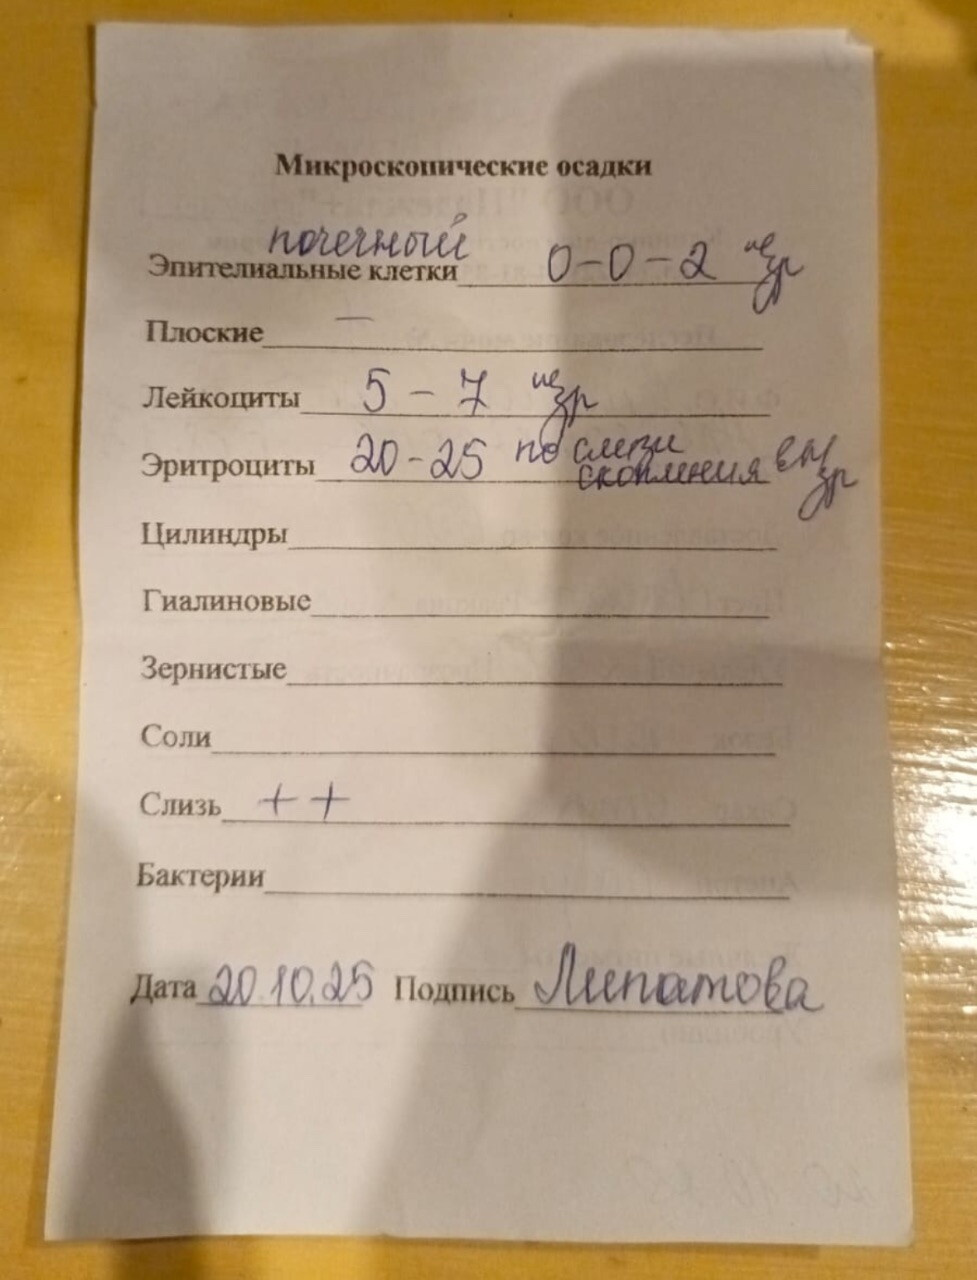 Микроскопические осадки
почечный
Эпителиальные клетки 0-0-2 п/зр
Плоские —
Лейкоциты 5-7 п/зр
Эритроциты 20-25 по слизи скопления в п/зр
Цилиндры
Гиалиновые
Зернистые
Соли
Слизь ++
Бактерии
Дата 20.10.25 Подпись Липатова